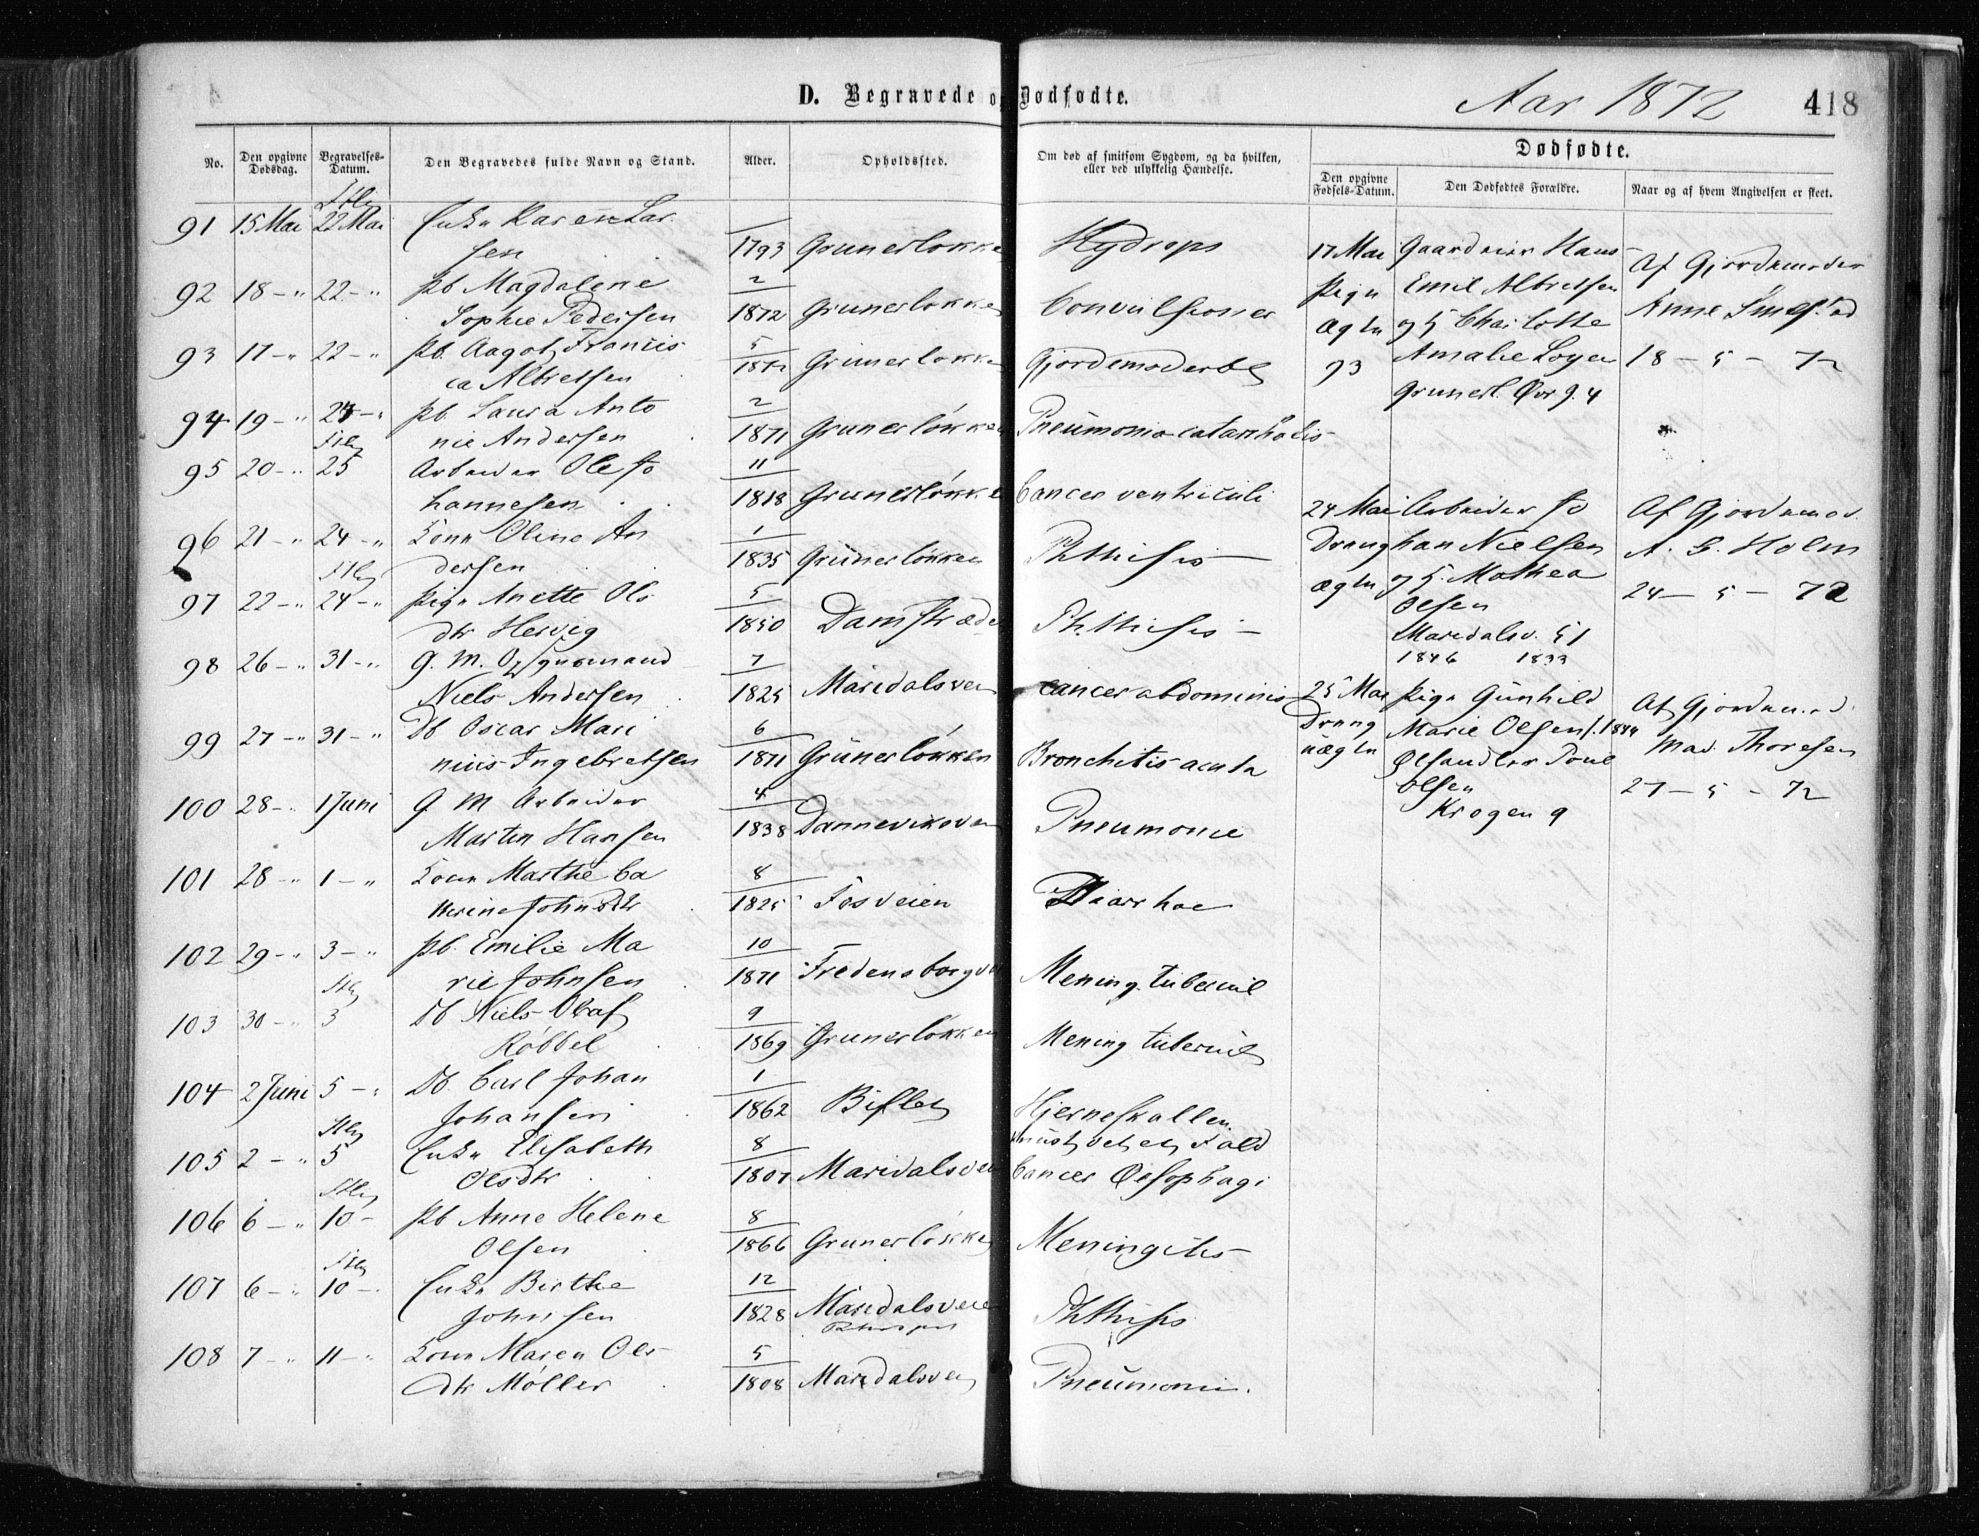 D. Begravede og Dødfødte.
Aar 1872
418
No.
Den opgivne Dødsdag.
Begravelses-Datum.
Den Begravedes fulde Navn og Stand.
Alder.
Opholdssted.
Om død af smitsom Sygdom, og da hvilken, eller ved ulykkelig Hændelse.
Dødfødte.
Den opgivne Fødsels-Datum.
Den Dødfødtes Forældre.
Naar og af hvem Angivelsen er skeet.
91 15 Mai 22 Mai Enke Karen Lar
sen 1793 Grunerløkke Hydrops
92 18 - " 22 - " Pb. Magdalene 2
Sophie Pedersen 1872 Grunerløkken Convulsioner
93 17 - " 22 - " Pb. Aagot Francis 5
ca Albretsen 1872 Grunerløkken Gjordemoderbet
94 19 - " 24 - " Pb. Laura Anto 2
nie Andersen 1871 Grunerløkken Pneumonia catarrhalis
95 20 - " 25 Arbeider Ole Jo 11
hannesen 1818 Grunerløkke Cancer ventriculi
96 21 - " 24 - " Kone Oline An 1
dersen 1835 Grünerløkken Phthisis
97 22 - " 24 - " Pige Anette Ols 5
dtr Hervig 1850 Damstræde Phthisis
98 26 - " 31 - " G. M. Opsynsmand 7
Niels Andersen 1825 Maridalsvei cancer abdominis
99 27 - " 31 - " Db Oscar Mari 6
nius Ingebretsen 1871 Grünerløkken Bronchitis acuta
100 28 - " 1 Juni G M Arbeider 4
Martin Hansen 1838 Dannevirksvei Pneumonie
101 28 - " 1 - " Kone Marthe Ca 8
therine Johnsdtr 1825 Fosveien Diarrhoe
102 29 - " 3 - " Pb. Emilie Ma 10
rie Johnsen 1871 Fredensborgve Mening. tubercul
103 30 - " 3 Db Niels Olaf 9
Røbbel 1869 Grunerløkken Mening tubercul
104 2 Juni 5 - " Db. Carl Johan 1
Johansen 1862 Bislet Hjerneskallen
knust ved et Fald
105 2 - " 5 Enke Elisabeth 8
Olsdtr 1807 Maridalsvei Cancer Øesophagi
106 6 - " 10 - Pb Anne Helene 8
Olsen 1866 Grunerløkke Meningitis
107 6 - " 10 - Enke Birthe 12
Johnsen 1828 Maridalsveie Phthisis
108 7 - " 11 - " Kone Maren Ols 5
dtr Møller 1808 Maridalsvei Pneumoni.
17 Mai Gaardeier Hans Af Gjordemoder
Pige Emil Albretsen Anne
ægte og h Charlotte
93 Amalie Loyer 18 - 5 - 72
Grunerl. Øvr g. 4
24 Mai Arbeider Jo Af Gjordemod.
Dreng han Nielsen A. G. Holm
ægte og h. Mathea 24 - 5 - 72
Olsen
Maridalsv. 51
1846 1833
25 Mai Pige Gunhild Af Gjordem. d.
Dreng Marie Olsen f. 1844 Mad. Thoresen
uægte Ølhandler Poul
Olsen 27 - 5 - 72
Krogen 9